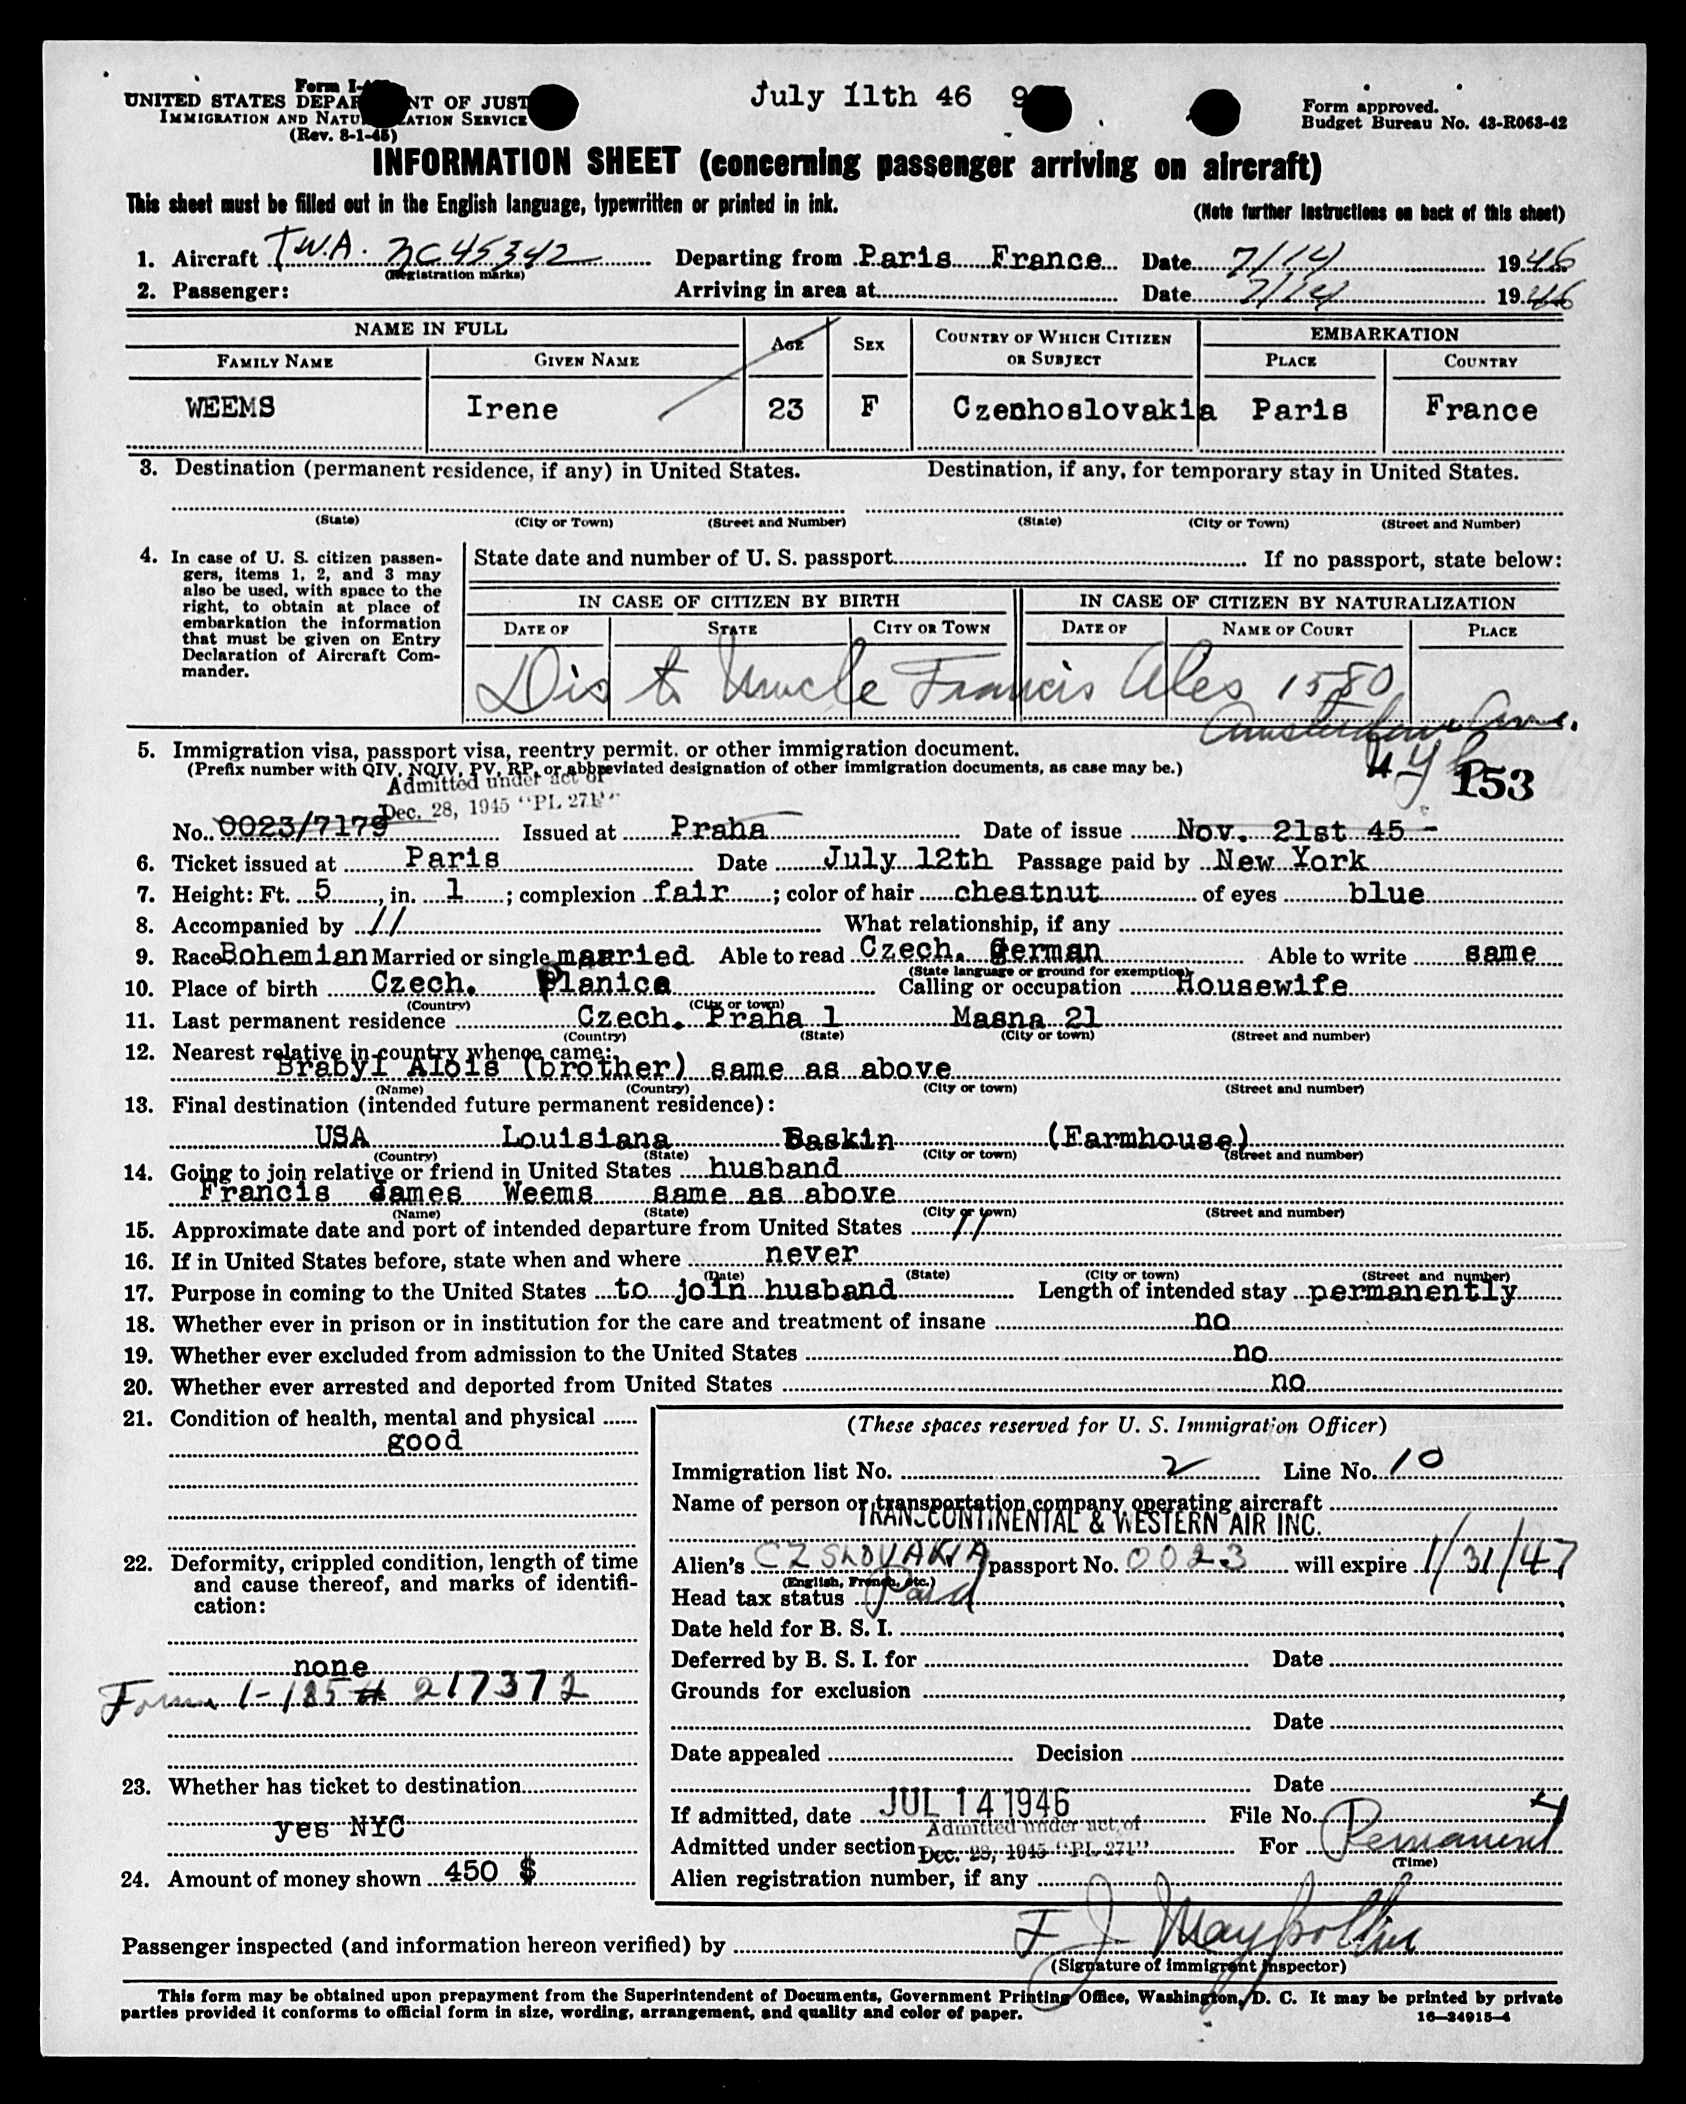 Form I-
July 11th 46 9
UNITED STATES DEPAR NT OF JUST
IMMIGRATION AND NATU ATION SERVICE
(Rev. 8-1-45)
Form approved.
Budget Bureau No. 43-R063-42
INFORMATION SHEET (concerning passenger arriving on aircraft)
This sheet must be filled out in the English language, typewritten or printed in ink.
(Note further instructions on back of this sheet)
1. Aircraft T.W.A. NC45342 Departing from Paris France Date 7/14 1946
(Registration marks)
2. Passenger: Arriving in area at Date 7/14 1946
NAME IN FULL AGE SEX COUNTRY OF WHICH CITIZEN OR SUBJECT EMBARKATION
FAMILY NAME GIVEN NAME PLACE COUNTRY
WEEMS Irene 23 F Czenhoslovakia Paris France
3. Destination (permanent residence, if any) in United States. Destination, if any, for temporary stay in United States.
(State) (City or Town) (Street and Number) (State) (City or Town) (Street and Number)
4. In case of U. S. citizen passengers, items 1, 2, and 3 may also be used, with space to the right, to obtain at place of embarkation the information that must be given on Entry Declaration of Aircraft Commander.
State date and number of U. S. passport If no passport, state below:
IN CASE OF CITIZEN BY BIRTH IN CASE OF CITIZEN BY NATURALIZATION
DATE OF STATE CITY OR TOWN DATE OF NAME OF COURT PLACE
Dis to Uncle Francis Ales 1580
Amsterdam Ave.
5. Immigration visa, passport visa, reentry permit, or other immigration document.
(Prefix number with QIV, NQIV, PV, RP, or abbreviated designation of other immigration documents, as case may be.)
N Y C 153
Admitted under act of
Dec. 28, 1945 "PL 271"
No. 0023/7179 Issued at Praha Date of issue Nov. 21st 45 -
6. Ticket issued at Paris Date July 12th Passage paid by New York
7. Height: Ft. 5, in. 1; complexion fair; color of hair chestnut of eyes blue
8. Accompanied by // What relationship, if any
9. Race Bohemian Married or single married Able to read Czech. German Able to write same
(State language or ground for exemption)
10. Place of birth Czech. Planica Calling or occupation Housewife
(Country) (City or town)
11. Last permanent residence Czech. Praha 1 Masna 21
(Country) (State) (City or town) (Street and number)
12. Nearest relative in country whence came:
Brabyl Alois (brother) same as above
(Name) (Country) (City or town) (Street and number)
13. Final destination (intended future permanent residence):
USA Louisiana Baskin (Farmhouse)
(Country) (State) (City or town) (Street and number)
14. Going to join relative or friend in United States husband
Francis James Weems same as above
(Name) (State) (City or town) (Street and number)
15. Approximate date and port of intended departure from United States //
16. If in United States before, state when and where never
(Date) (State) (City or town) (Street and number)
17. Purpose in coming to the United States to join husband Length of intended stay permanently
18. Whether ever in prison or in institution for the care and treatment of insane no
19. Whether ever excluded from admission to the United States no
20. Whether ever arrested and deported from United States no
21. Condition of health, mental and physical
good
22. Deformity, crippled condition, length of time and cause thereof, and marks of identification:
none
Form I-185 # 217372
23. Whether has ticket to destination
yes NYC
24. Amount of money shown 450 $
(These spaces reserved for U. S. Immigration Officer)
Immigration list No. 2 Line No. 10
Name of person or transportation company operating aircraft
TRANSCONTINENTAL & WESTERN AIR INC.
Alien's CZSLOVAKIA passport No. 0023 will expire 1/31/47
(English, French, etc.)
Head tax status Paid
Date held for B. S. I.
Deferred by B. S. I. for Date
Grounds for exclusion
Date
Date appealed Decision
Date
If admitted, date JUL 14 1946 File No.
Admitted under act of
Admitted under section Dec. 28, 1945 "PL 271" For Permanent
(Time)
Alien registration number, if any
Passenger inspected (and information hereon verified) by F J
(Signature of immigrant inspector)
This form may be obtained upon prepayment from the Superintendent of Documents, Government Printing Office, Washington, D. C. It may be printed by private
parties provided it conforms to official form in size, wording, arrangement, and quality and color of paper.
16—24915-4